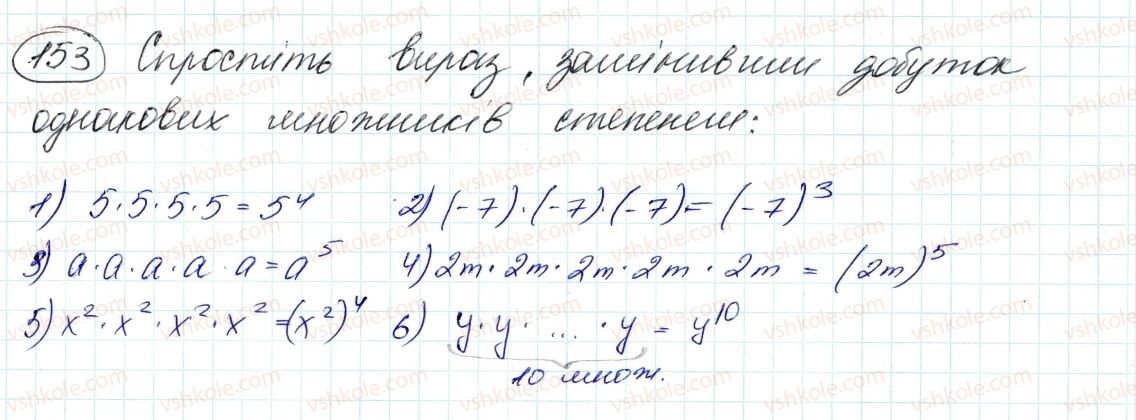 153 Спростіть вираз, замінивши добуток
однакових множників степенем:
1) 5·5·5·5 = 5⁴ 2) (-7)·(-7)·(-7) = (-7)³
3) a·a·a·a·a = a⁵ 4) 2m·2m·2m·2m·2m = (2m)⁵
5) x²·x²·x²·x² = (x²)⁴ 6) y·y·...·y = y¹⁰
10 множ.